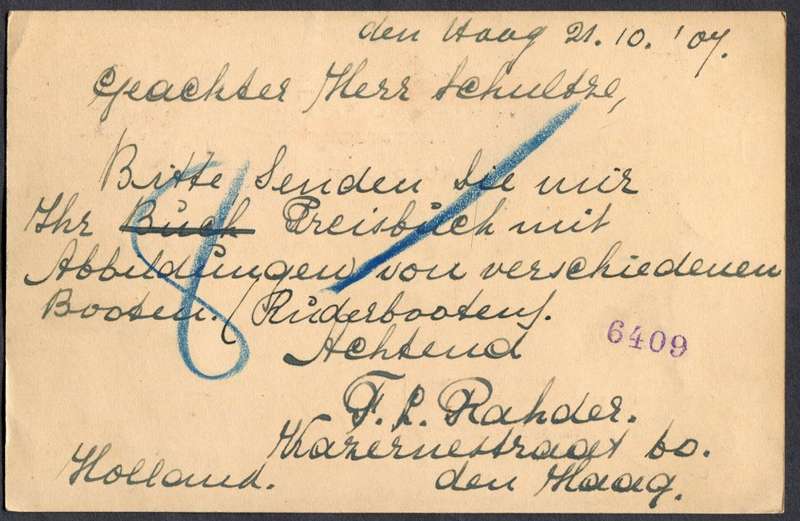 den Haag 21.10.'07.
Geachter Herr Schultze,
Bitte Senden Sie mir
Ihr Buch Preisbuch mit
Abbildungen von verschiedenen
Booten. (Ruderbooten).
Achtend
6409
F. L. Rahder.
Kazernestraat 60.
Holland. den Haag.
8